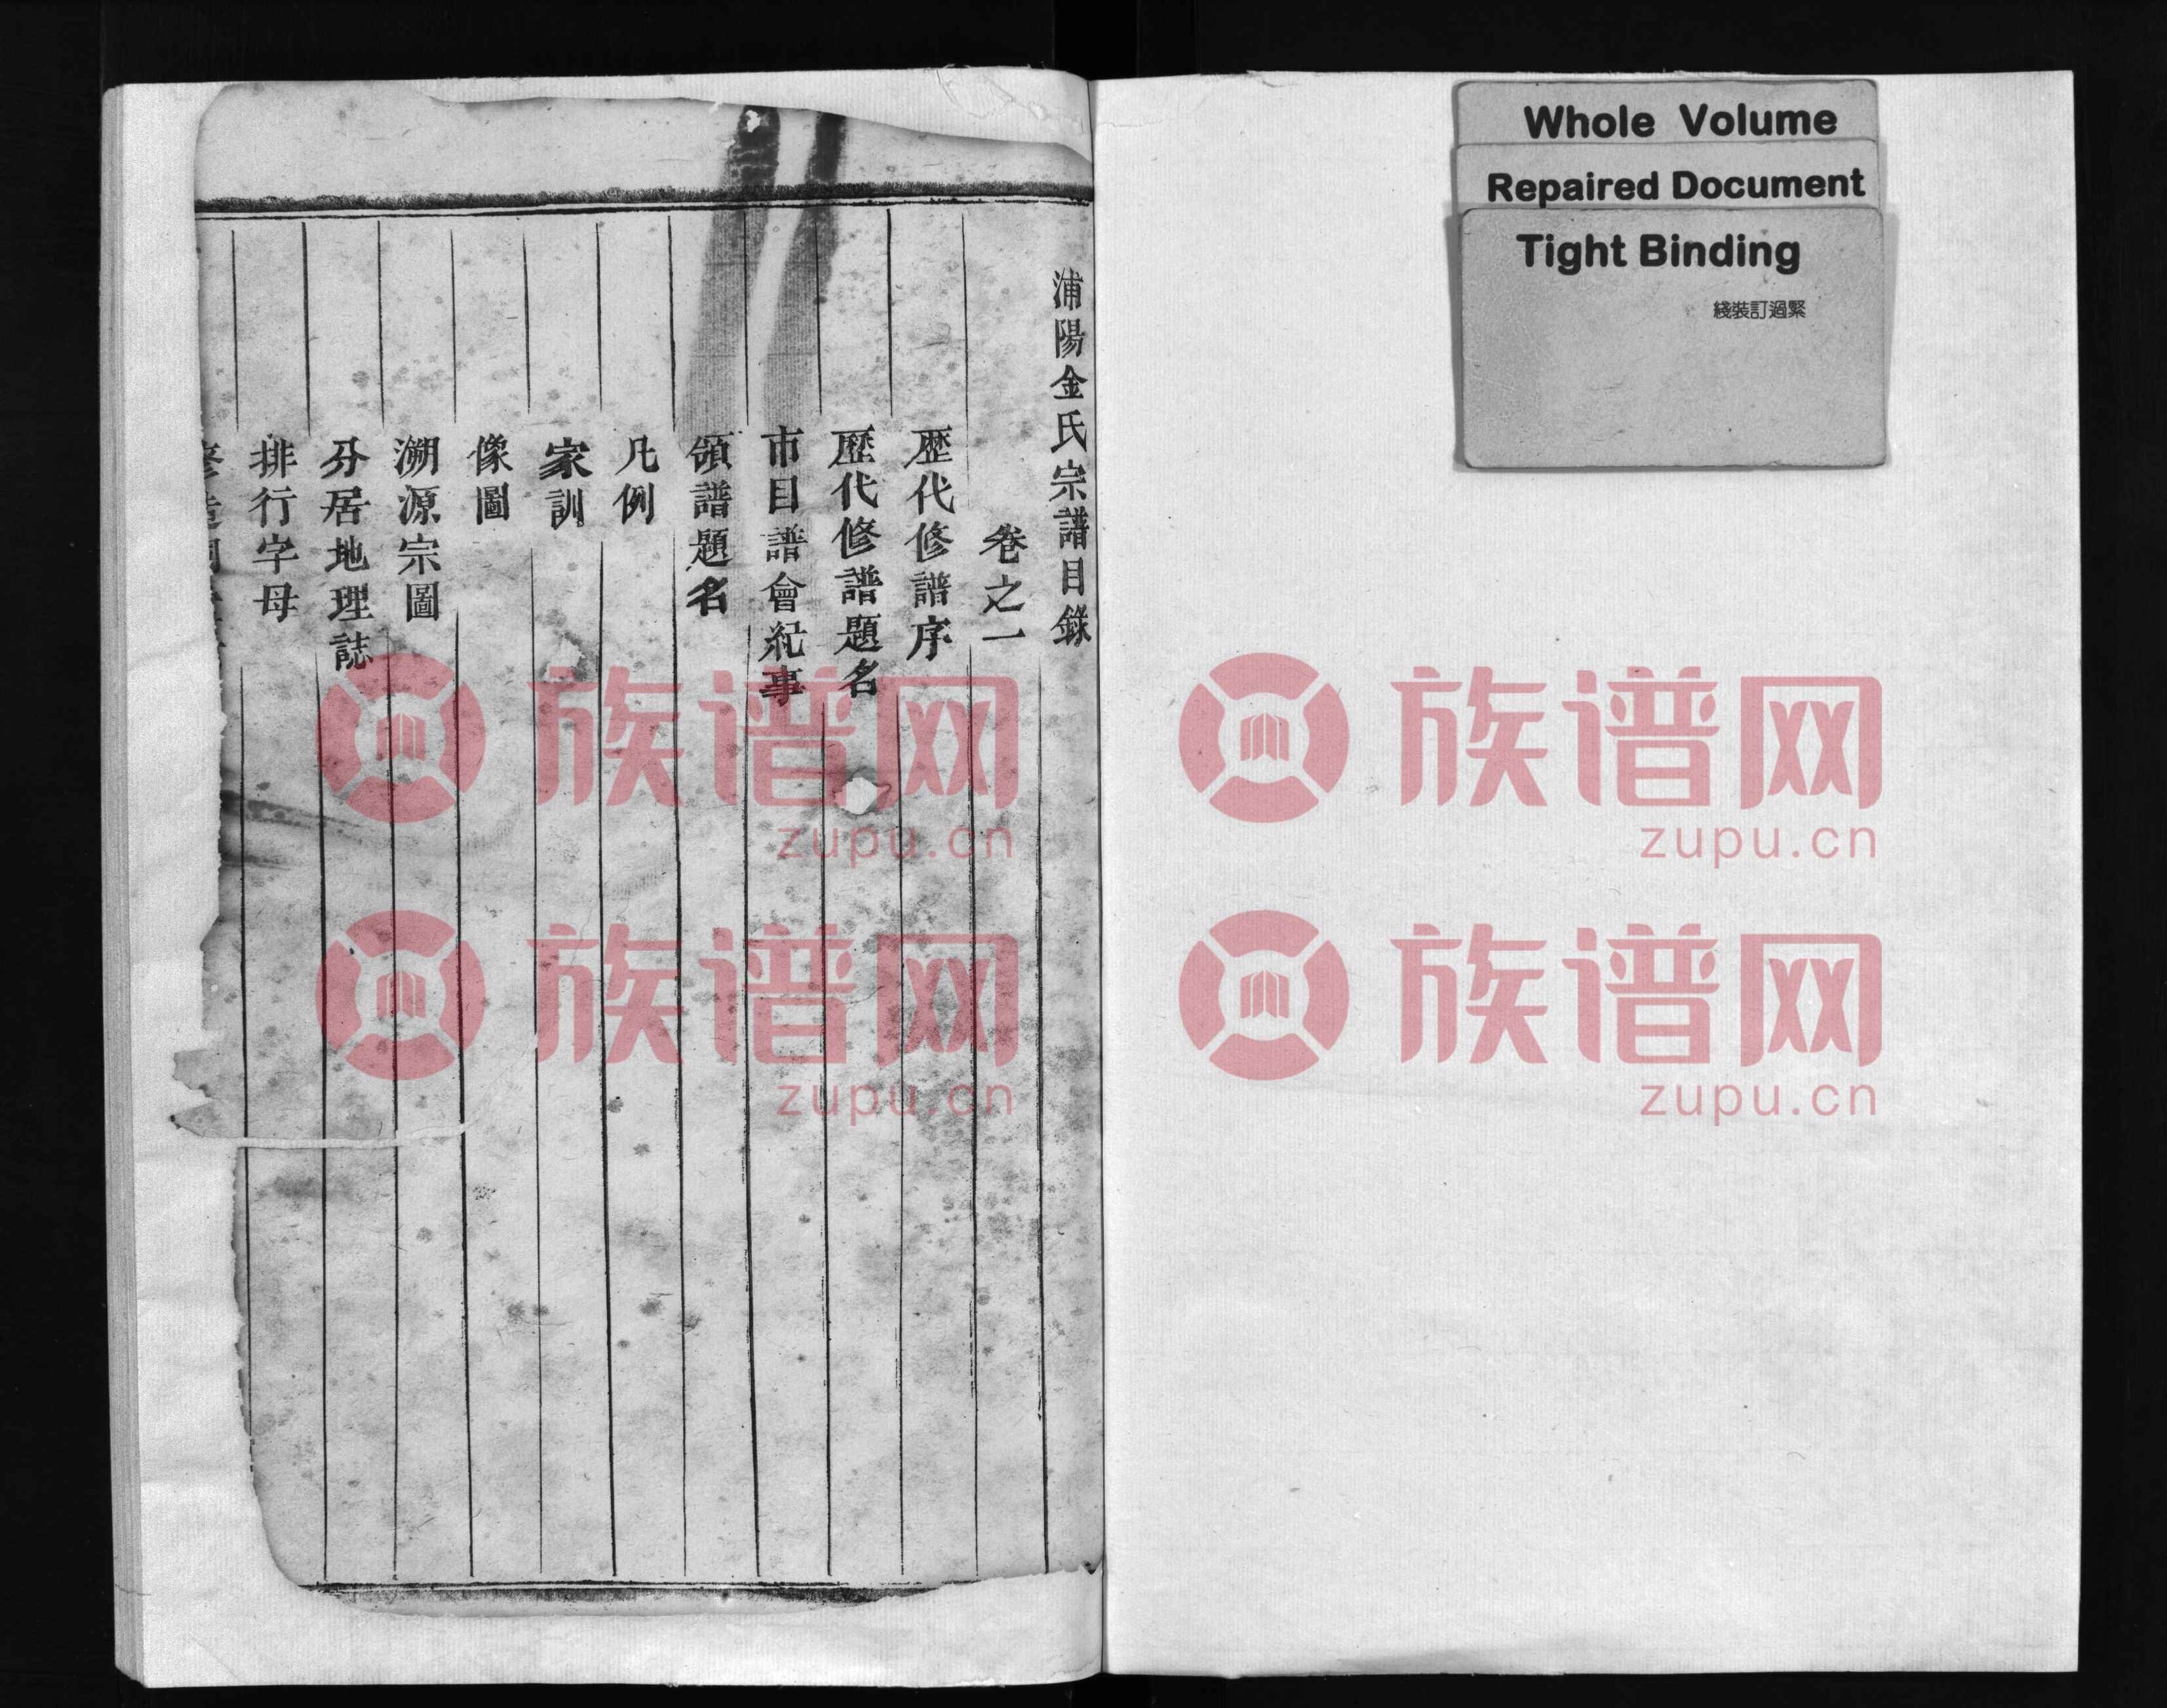 Whole Volume
Repaired Document
Tight Binding
綫裝訂過緊
浦陽金氏宗譜目錄
卷之一
歷代修譜序
歷代修譜題名
市目譜會紀事
領譜題名
凡例
家訓
像圖
溯源宗圖
分居地理誌
排行字母
族谱网
zupu.cn
族谱网
zupu.cn
族谱网
zupu.cn
族谱网
zupu.cn